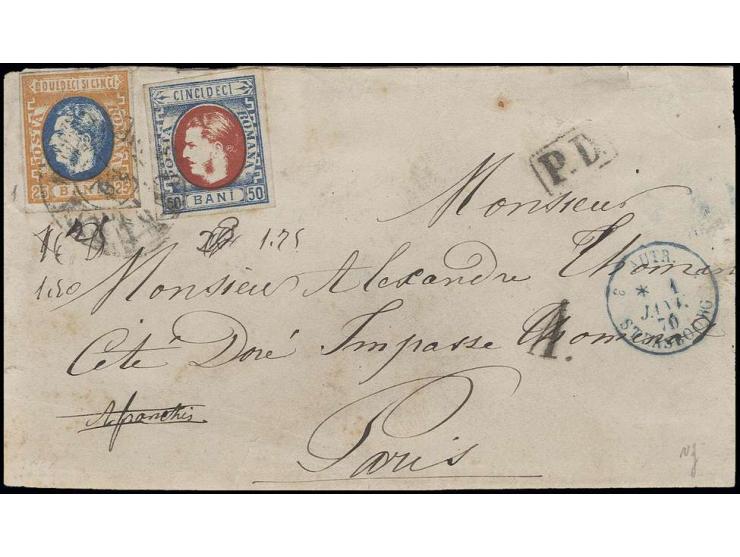 DOUEDECI SI CINCI
POSTA
ROMANA
25 BANI 25
CINCIDECI
POSTA
ROMANA
50 BANI 50
P.D.
Monsieur
1.25
1.50
Monsieur Alexandre Thoman
Cité Doré Impasse Thoman
Affranchie
Paris
AUTR.
3
* 1
JANV.
70
STRASBOURG